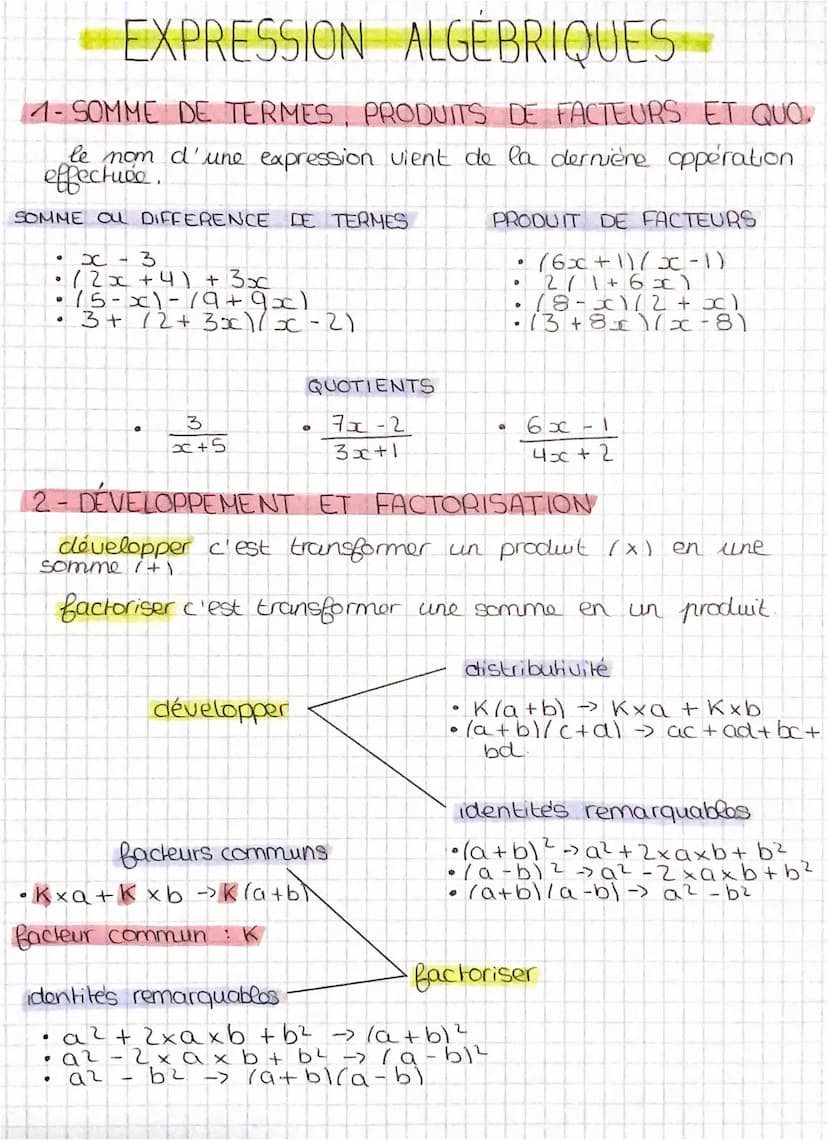 EXPRESSION ALGÉBRIQUES
1- SOMME DE TERMES, PRODUITS DE FACTEURS ET QUO.
le nom d'une expression vient de la dernière oppération
effectuée.
SOMME OU DIFFERENCE DE TERMES
• x - 3
• (2x + 4) + 3x
• (5 - x) - (9 + 9x)
• 3 + (2 + 3x)(x - 2)
PRODUIT DE FACTEURS
• (6x + 1)(x - 1)
• 2(1 + 6x)
• (8 - x)(2 + x)
• (3 + 8x)(x - 8)
QUOTIENTS
• 3/(x+5) • (7x - 2)/(3x+1) • (6x - 1)/(4x + 2)
2 - DÉVELOPPEMENT ET FACTORISATION
développer c'est transformer un produit (x) en une
somme (+)
factoriser c'est transformer une somme en un produit
développer
distributivité
• K(a+b) -> K×a + K×b
• (a+b)(c+d) -> ac + ad + bc +
bd
identités remarquables
• (a+b)² -> a² + 2×a×b + b²
• (a-b)² -> a² - 2×a×b + b²
• (a+b)(a-b) -> a² - b²
facteurs communs
• K×a + K×b -> K(a+b)
facteur commun : K
factoriser
identités remarquables
• a² + 2×a×b + b² -> (a+b)²
• a² - 2×a×b + b² -> (a-b)²
• a² - b² -> (a+b)(a-b)